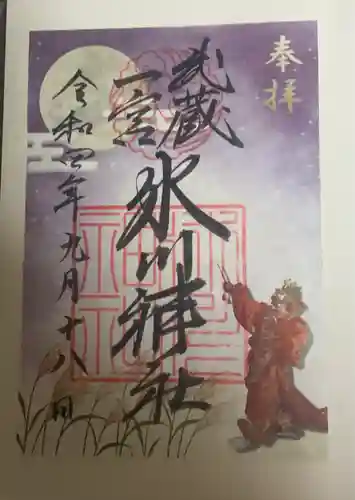 奉拝
武蔵
一宮
氷川神社
令和四年九月十八日